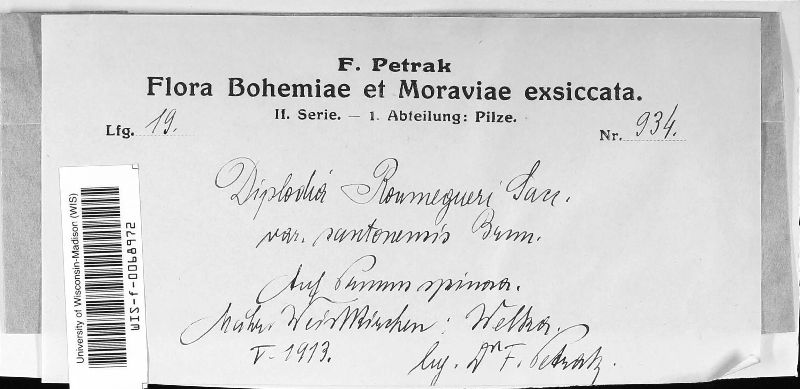 F. Petrak
Flora Bohemiae et Moraviae exsiccata.
II. Serie. — 1. Abteilung: Pilze.
Lfg. 19.
Nr. 934.
Diplodia Roumegueri Sacc.
var. santonensis Brun.
Auf Prunus spinosa.
Mähr. Weisskirchen: Welka.
V. 1913.
lug. Dr F. Petrak.
University of Wisconsin-Madison (WIS)
WIS-f-0068972